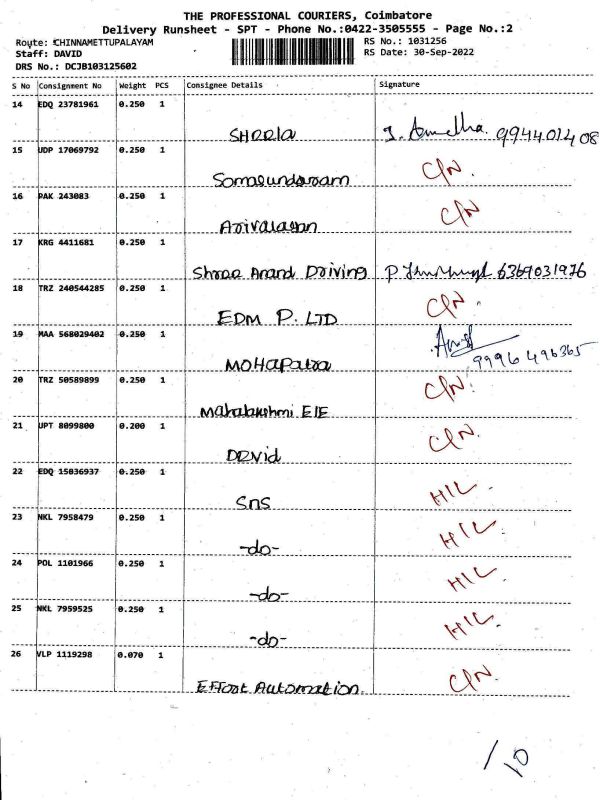 THE PROFESSIONAL COURIERS, Coimbatore
Delivery Runsheet - SPT - Phone No.:0422-3505555 - Page No.:2
Route: CHINNAMETTUPALAYAM RS No.: 1031256
Staff: DAVID RS Date: 30-Sep-2022
DRS No.: DCJB103125602
S No Consignment No Weight PCS Consignee Details Signature
14 EDQ 23781961 0.250 1
Sheela 9944001408
15 UDP 17069792 0.250 1
Somasundaram C/N.
16 PAK 243083 0.250 1
Arivalagan C/N
17 KRG 4411681 0.250 1
Shree Anand Driving 6369031976
18 TRZ 240544285 0.250 1
EDM P. LTD C/N.
19 MAA 568029402 0.250 1
Mohapatra 9996496365
20 TRZ 50589899 0.250 1
Mahalakshmi EIE C/N.
21 UPT 8099800 0.200 1
DRVid C/N.
22 EDQ 15036937 0.250 1
SNS H/L.
23 NKL 7958479 0.250 1
-do- H/L.
24 POL 1101966 0.250 1
-do- H/L.
25 NKL 7959525 0.250 1
-do- H/L.
26 VLP 1119298 0.070 1
Effort Automation. C/N.
/10